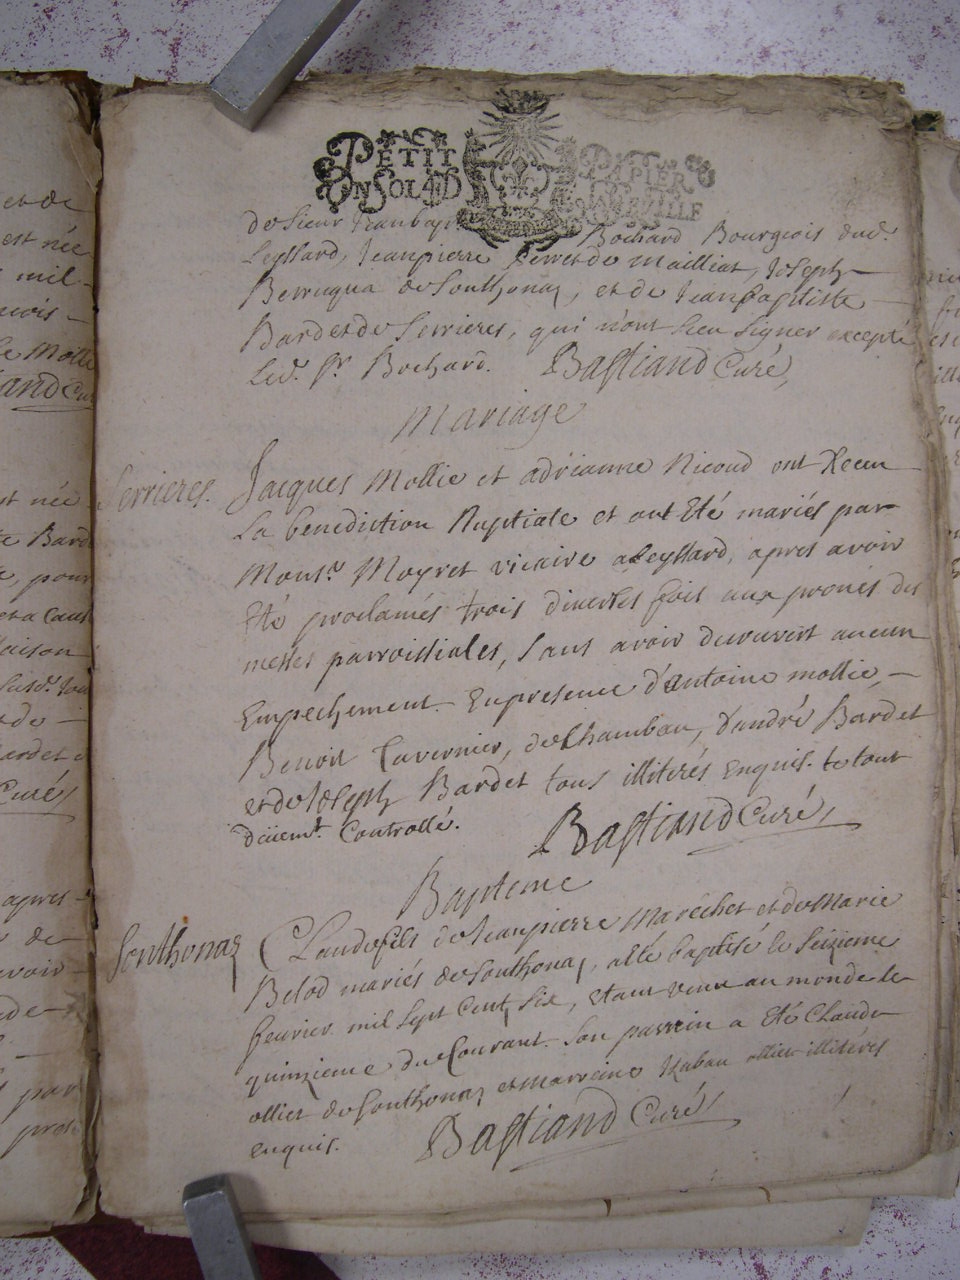 PETIT PAPIER
UN SOL 4 D
de Sieur Jeanbap Bochard Bourgeois dud.
Leyssard, Jeanpierre perret de Mailliat, Joseph
Berruqua de Southonaz, et de Jeanbaptiste
Bardet de Serrieres, qui n'ont Sceu Signer excepté
Led. Sr. Bochard. Bastiand Curé
Mariage
Serrieres. Jacques Mollie et adrianne Nicoud ont Receu
La benediction Nuptiale et ont Eté mariés par
Monsr. Moyret vicaire a Leyssard, apres avoir
Eté proclamés trois diverses fois aux prones des
messes parroissiales, Sans avoir decouvert aucun
Empechement. En presence d'antoine mollie,
Benoit Tavernier, de Chambau, d'andré Bardet
et de Joseph Bardet tous illiterés enquis. te tout
düemt. Controllé. Bastiand Curé
Bapteme
Southonaz Claude fils de Jeanpierre Maréchet et de Marie
Belod mariés de Southonaz, a été baptisé le Seizieme
fevrier mil Sept Cent Six, etant venu au monde le
quinzieme du Courant. Son parrein a Eté Claude
ollier de Southonaz et Marreine Ysabau ollier illiterés
enquis. Bastiand Curé
et de
est née
mil
Le Molle
Curé
née
Bard
pour
aison
ardet
Curé
apres
de
avoir
par